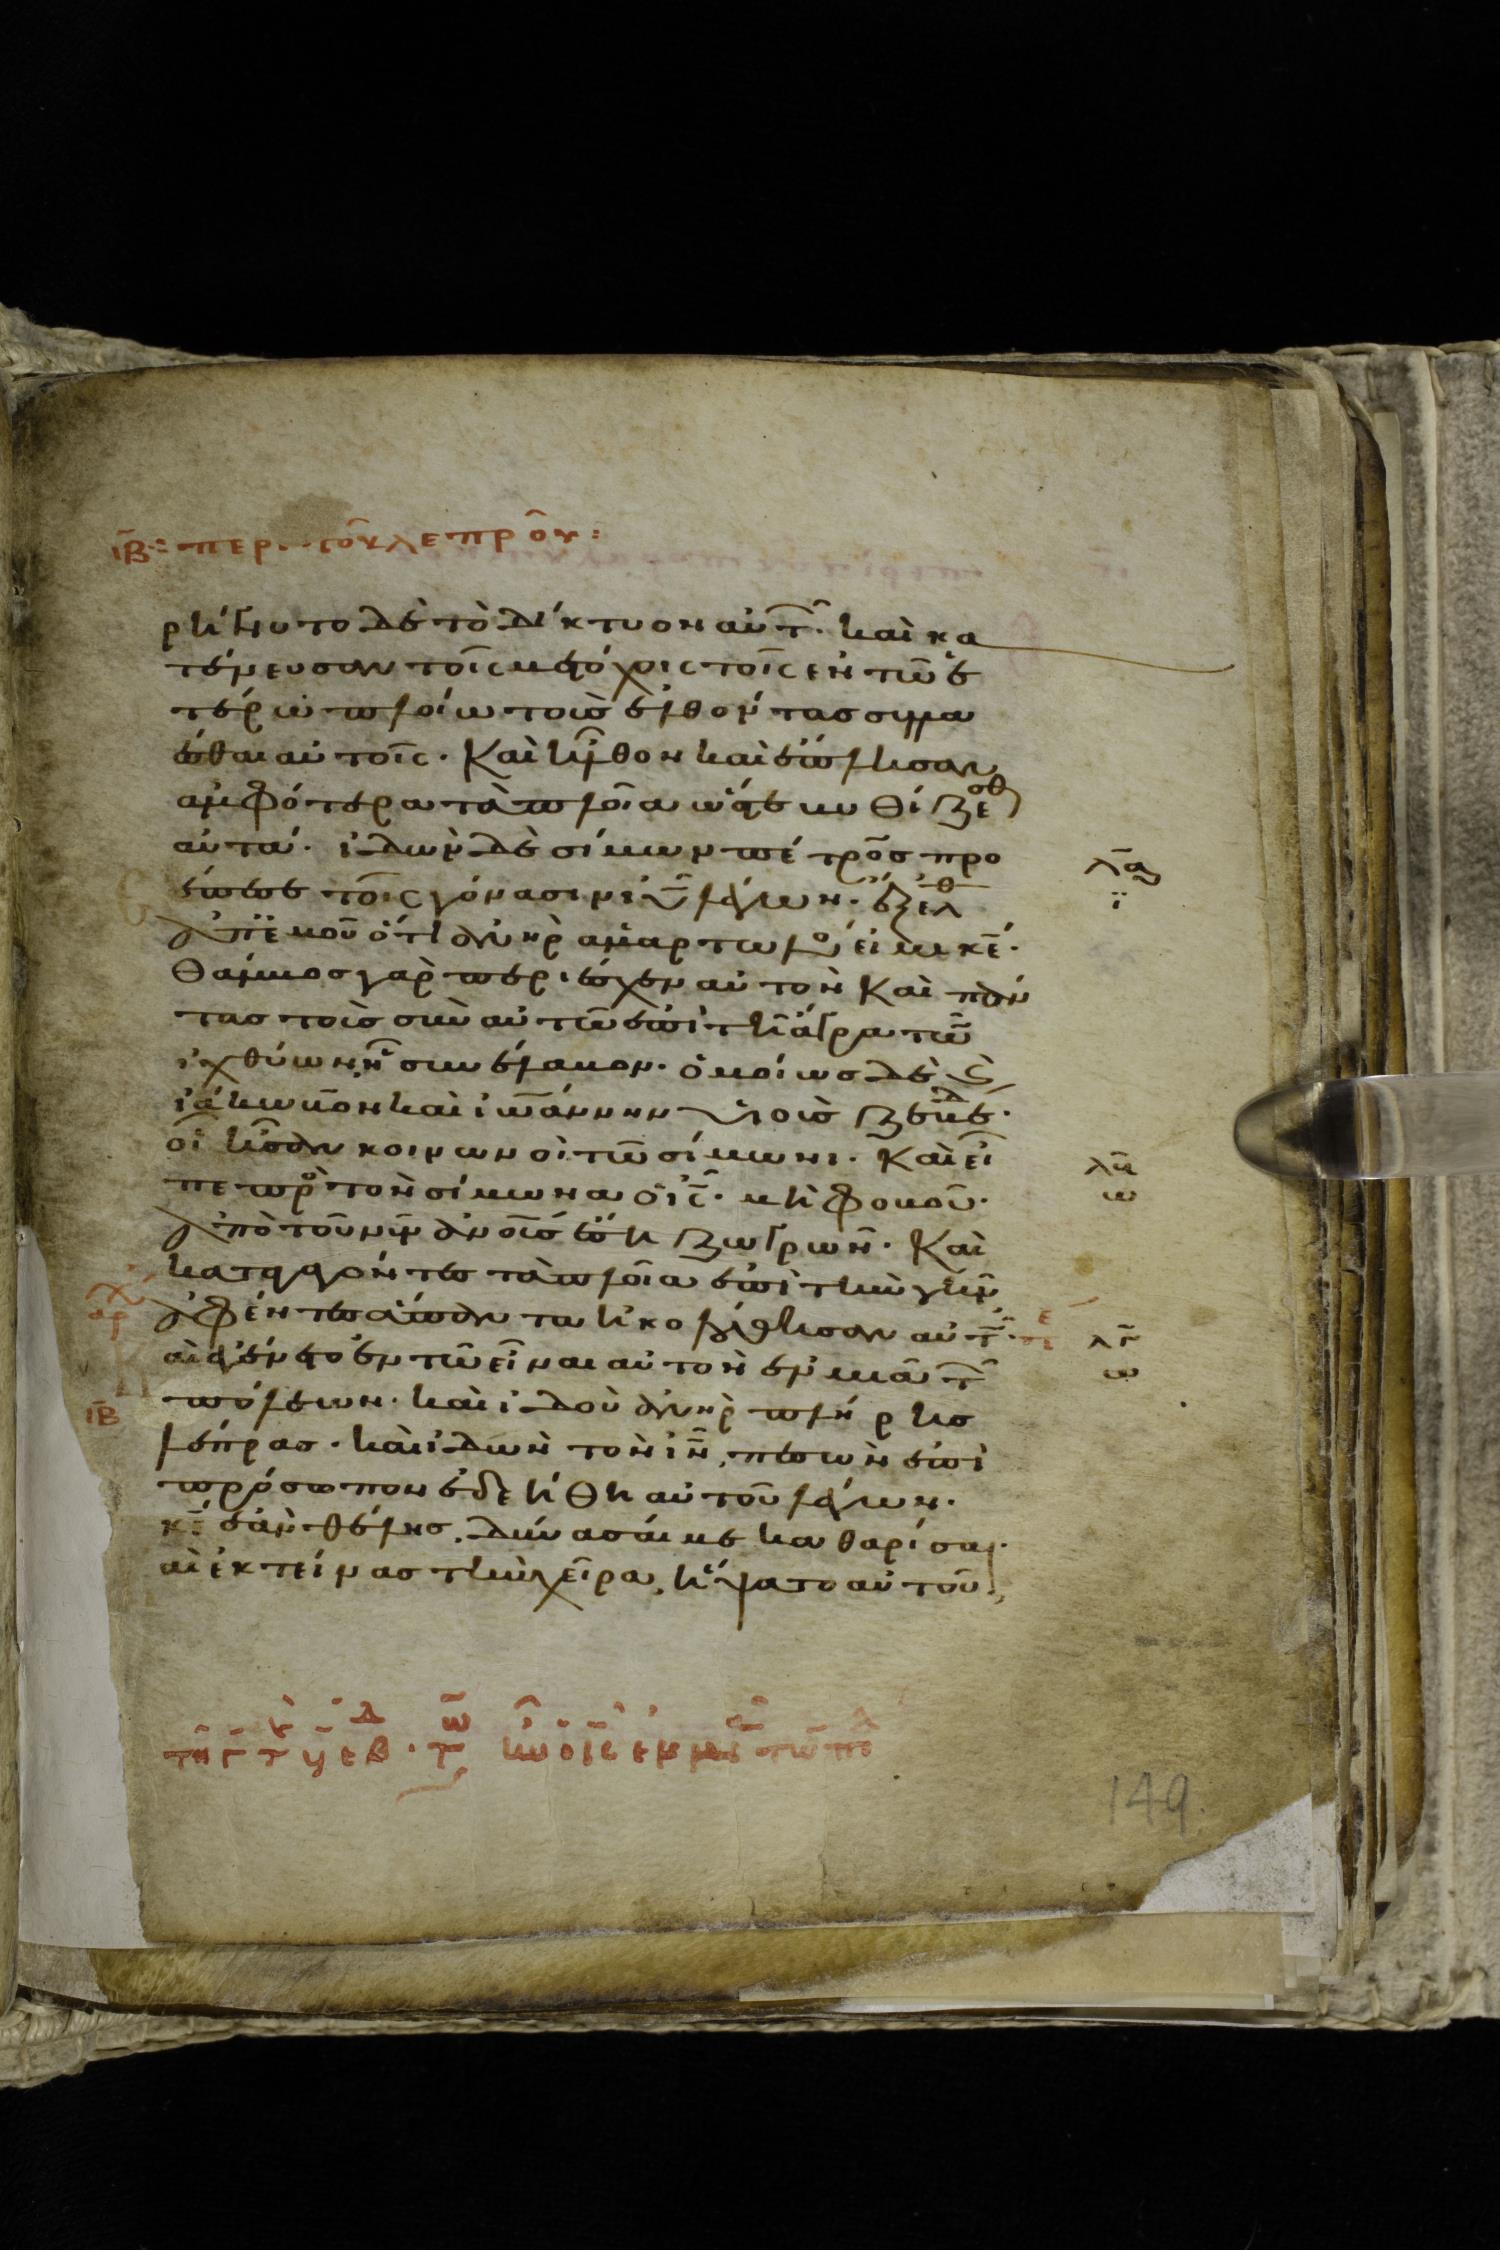 ιβ̅: περι τοῦ λεπροῦ:
ρήγνυτο δὲ τὸ δίκτυον αὐτ̅. καὶ κα
τένευσαν τοῖς μετόχοις τοῖς ἐν τῶ ἑ
τέρω πλοίω τοῦ ἐλθόντας συλλα
έσθαι αὐτοῖς. Καὶ ἦλθον καὶ ἔπλησαν
ἀμφότερα τὰ πλοῖα ὥστε βυθίζεσθ
αὐτά. ἰδὼν δὲ σίμων πέτρος προ
έπεσε τοῖς γόνασιν ιυ̅ λέγων. ἔξελθ
ἀπ ἐμοῦ ὅτι ἀνὴρ ἁμαρτωλό εἰμι κε̅.
Θάμβος γὰρ περιέσχεν αὐτὸν Καὶ πάν
τας τοὺς σὺν αὐτῶ ἐπὶ τῆ ἄγρα τῶ̅
ἰχθύων ἧ συνέλαβον. ὁμοίως δὲ καὶ
ἰάκωβον καὶ ἰωάννην υἱοὺς ζεβεδ.
οἳ ἦσαν κοινωνοὶ τῶ σίμωνι. Καὶ εἶ
πε πρὸ τὸν σίμωνα ὁ ις̅. μὴ φοβοῦ.
ἀπὸ τοῦ νῦν ἀνους ἔση ζωγρῶν. Καὶ
καταγαγόντες τὰ πλοῖα ἐπὶ τὴν γῆν
ἀφέντες ἅπαντα ἠκολούθησαν αὐτ̅.
αὶ ἐγένετο ἐν τῶ εἶναι αὐτὸν ἐν μιᾶ τ̅
πόλεων. καὶ ἰδοὺ ἀνὴρ πλήρης
λέπρας. καὶ ἰδὼν τὸν ιν̅, πεσὼν ἐπὶ
πρόσωπον ἐδεήθη αὐτοῦ λέγων.
κε̅ ἐὰν θέλης, δύνασαί με καθαρίσαι.
αὶ ἐκτείνας τὴν χεῖρα, ἥψατο αὐτοῦ,
λα̅
ϊ
λβ̅
ω
λγ̅
ω
αρχ
τε
ιβ̅
149.